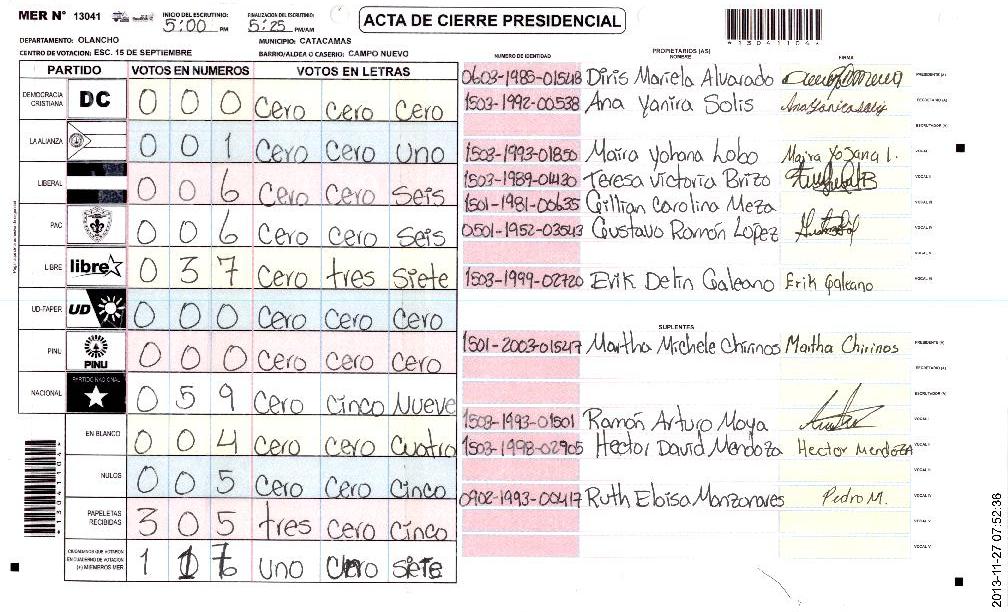 MER Nº 13041
INICIO DEL ESCRUTINIO:
5:00 PM
FINALIZACION DEL ESCRUTINIO:
5:25 PM/AM
ACTA DE CIERRE PRESIDENCIAL
*1304110 4*
DEPARTAMENTO: OLANCHO
MUNICIPIO: CATACAMAS
CENTRO DE VOTACION: ESC. 15 DE SEPTIEMBRE
BARRIO/ALDEA O CASERIO: CAMPO NUEVO
PARTIDO VOTOS EN NUMEROS VOTOS EN LETRAS
DEMOCRACIA CRISTIANA DC 0 0 0 Cero Cero Cero
LA ALIANZA 0 0 1 Cero Cero Uno
LIBERAL 0 0 6 Cero Cero Seis
PAC 0 0 6 Cero Cero Seis
LIBRE libre 0 3 7 Cero tres Siete
UD-FAPER UD 0 0 0 Cero Cero Cero
PINU PINU 0 0 0 Cero Cero Cero
NACIONAL PARTIDO NACIONAL 0 5 9 Cero Cinco Nueve
EN BLANCO 0 0 4 Cero Cero Cuatro
NULOS 0 0 5 Cero Cero Cinco
PAPELETAS RECIBIDAS 3 0 5 tres Cero Cinco
CIUDADANOS QUE VOTARON EN CUADERNO DE VOTACION (+) MIEMBROS MER 1 Uno siete
PROPIETARIOS (AS)
NUMERO DE IDENTIDAD NOMBRE FIRMA
0603-1985-01548 Diris Mariela Alvarado PRESIDENTE (A)
1503-1992-00538 Ana Yanira Solis SECRETARIO (A)
ESCRUTADOR (A)
1503-1993-01850 Maira Yohana Lobo VOCAL I
1503-1989-01430 Teresa Victoria Brizo VOCAL II
1501-1981-00635 Gillian Carolina Meza VOCAL III
0501-1952-03543 Gustavo Ramón Lopez VOCAL IV
1503-1999-02720 Erik Delin Galeano Erik Galeano
SUPLENTES
1501-2003-01547 Martha Michele Chirinos Martha Chirinos PRESIDENTE (A)
SECRETARIO (A)
ESCRUTADOR (A)
1503-1993-01501 Ramón Arturo Moya VOCAL I
1503-1998-02905 Hector David Mendoza Hector Mendoza
0902-1993-00417 Ruth Eloisa Manzonares Pedro M.
VOCAL V
2013-11-27 07:52:36